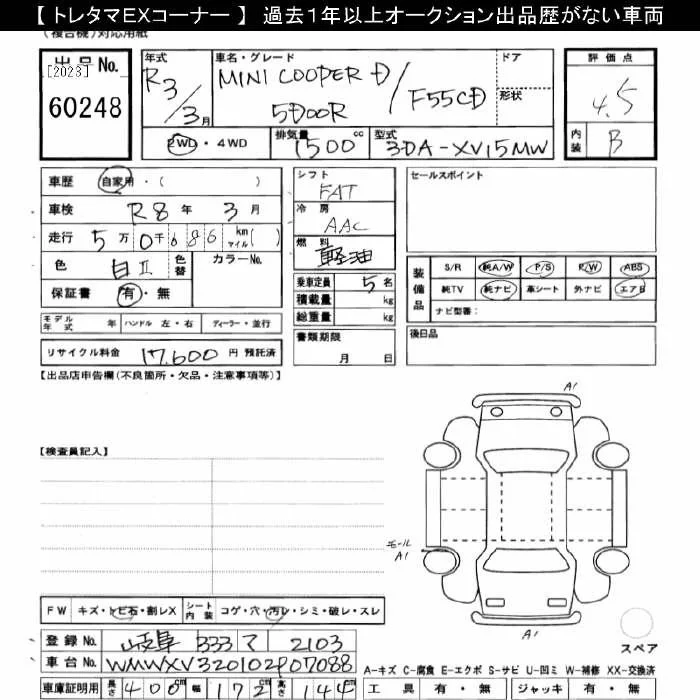 【 トレタマEXコーナー 】 過去1年以上オークション出品歴がない車両
(複合機)対応用紙
出品No. [2023] 60248
年式 R3/3月
車名・グレード MINI COOPER D 5DOOR / F55CD
ドア 形状
評価点 4.5
内装 B
2WD・4WD
排気量 1500 cc
型式 3DA-XV15MW
車歴 自家用・( )
車検 R8年 3月
走行 5万0千686 km マイル( )
色 白II 色替 カラーNo.
保証書 有・無
シフト FAT
冷房 AAC
燃料 軽油
乗車定員 5名
積載量 kg
総重量 kg
書類期限 月 日
セールスポイント
装備品 S/R 純A/W P/S P/W ABS
純TV 純ナビ 革シート 外ナビ エアB
ナビ型番:
後日品
モデル年式 年 ハンドル 左・右 ディーラー・並行
リサイクル料金 17,600 円 預託済
【出品店申告欄(不良箇所・欠品・注意事項等)】
【検査員記入】
A1
モール A1
A1
スペア
FW キズ・トビ石・割レX シート内装 コゲ・穴・汚レ・シミ・破レ・スレ
登録No. 岐阜 333 マ 2103
車台No. WMWXV320102P07088
A-キズ C-腐食 E-エクボ S-サビ U-凹ミ W-補修 XX-交換済
車庫証明用 長さ 400cm 幅 172cm 高さ 144cm
工具 有・無 ジャッキ 有・無